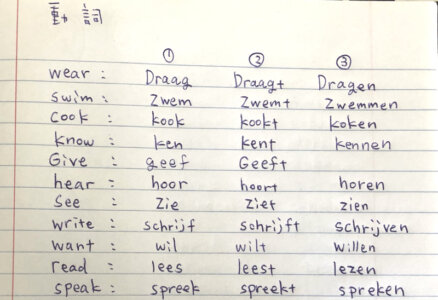 動詞
① ② ③
wear : Draag Draagt Dragen
swim : zwem zwemt zwemmen
cook : kook kookt koken
know : ken kent kennen
Give : geef Geeft
hear : hoor hoort horen
see : zie ziet zien
write : schrijf schrijft schrijven
want : wil wilt willen
read : lees leest lezen
speak : spreek spreekt spreken